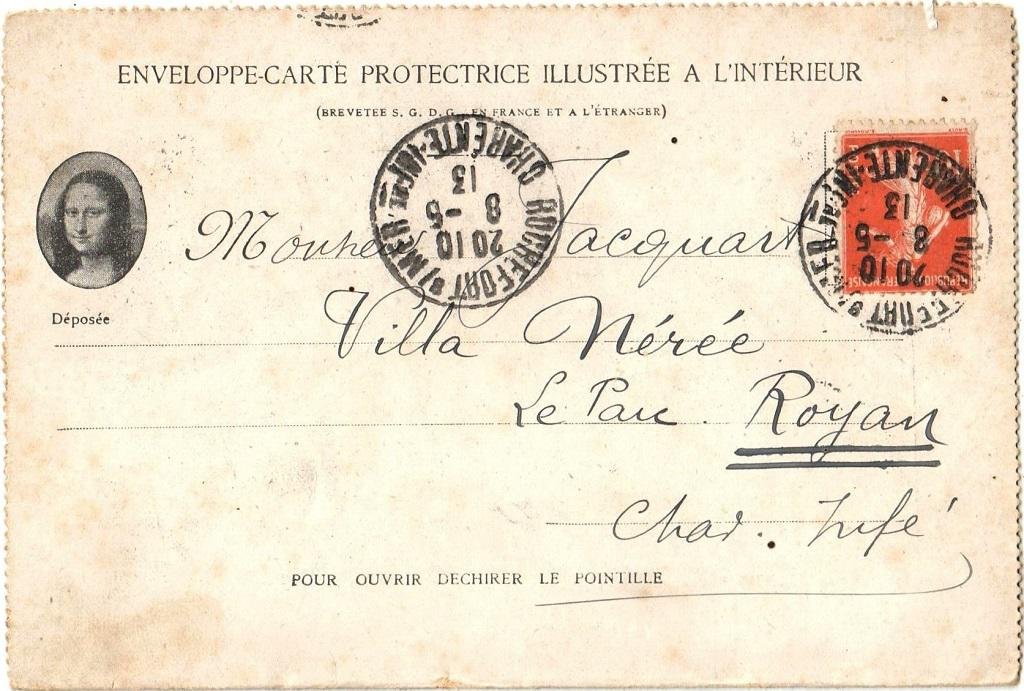 ENVELOPPE-CARTE PROTECTRICE ILLUSTRÉE A L'INTÉRIEUR
(BREVETEE S. G. D. G. EN FRANCE ET A L'ÉTRANGER)
ROCHEFORT S/MER
CHARENTE-INFRE
20 10
8 -5
13
ROCHEFORT S/MER
CHARENTE-INFRE
20 10
8 -5
13
REPUBLIQUE FRANÇAISE
Déposée
Jacquart
Villa Nérée
Le Parc. Royan
Char. Infé
POUR OUVRIR DECHIRER LE POINTILLE